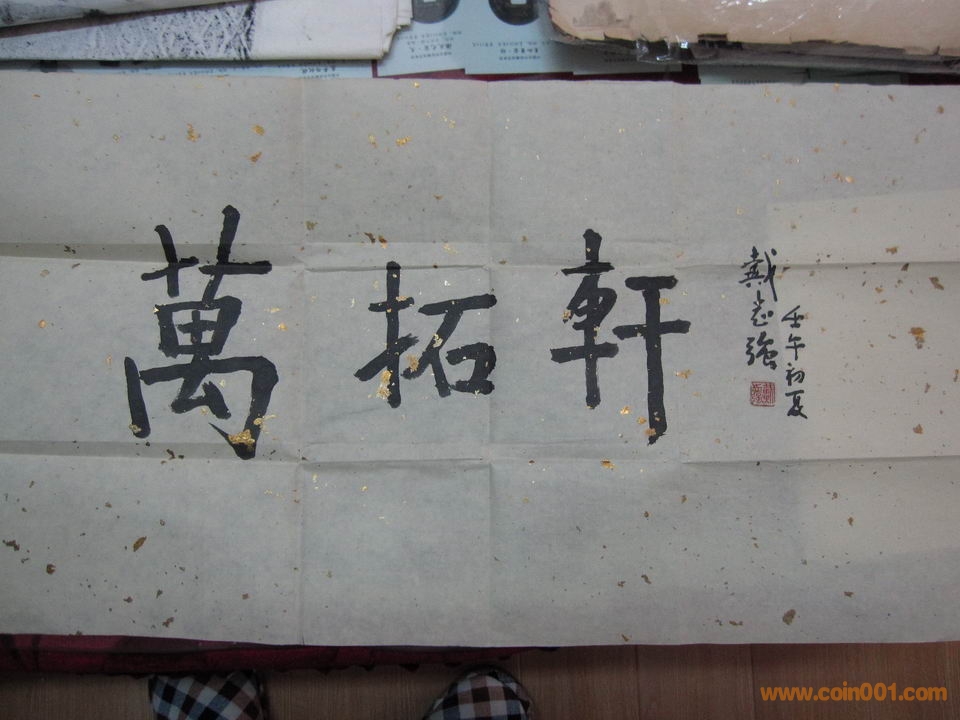 萬拓軒
壬午初夏
戴志強
www.coin001.com